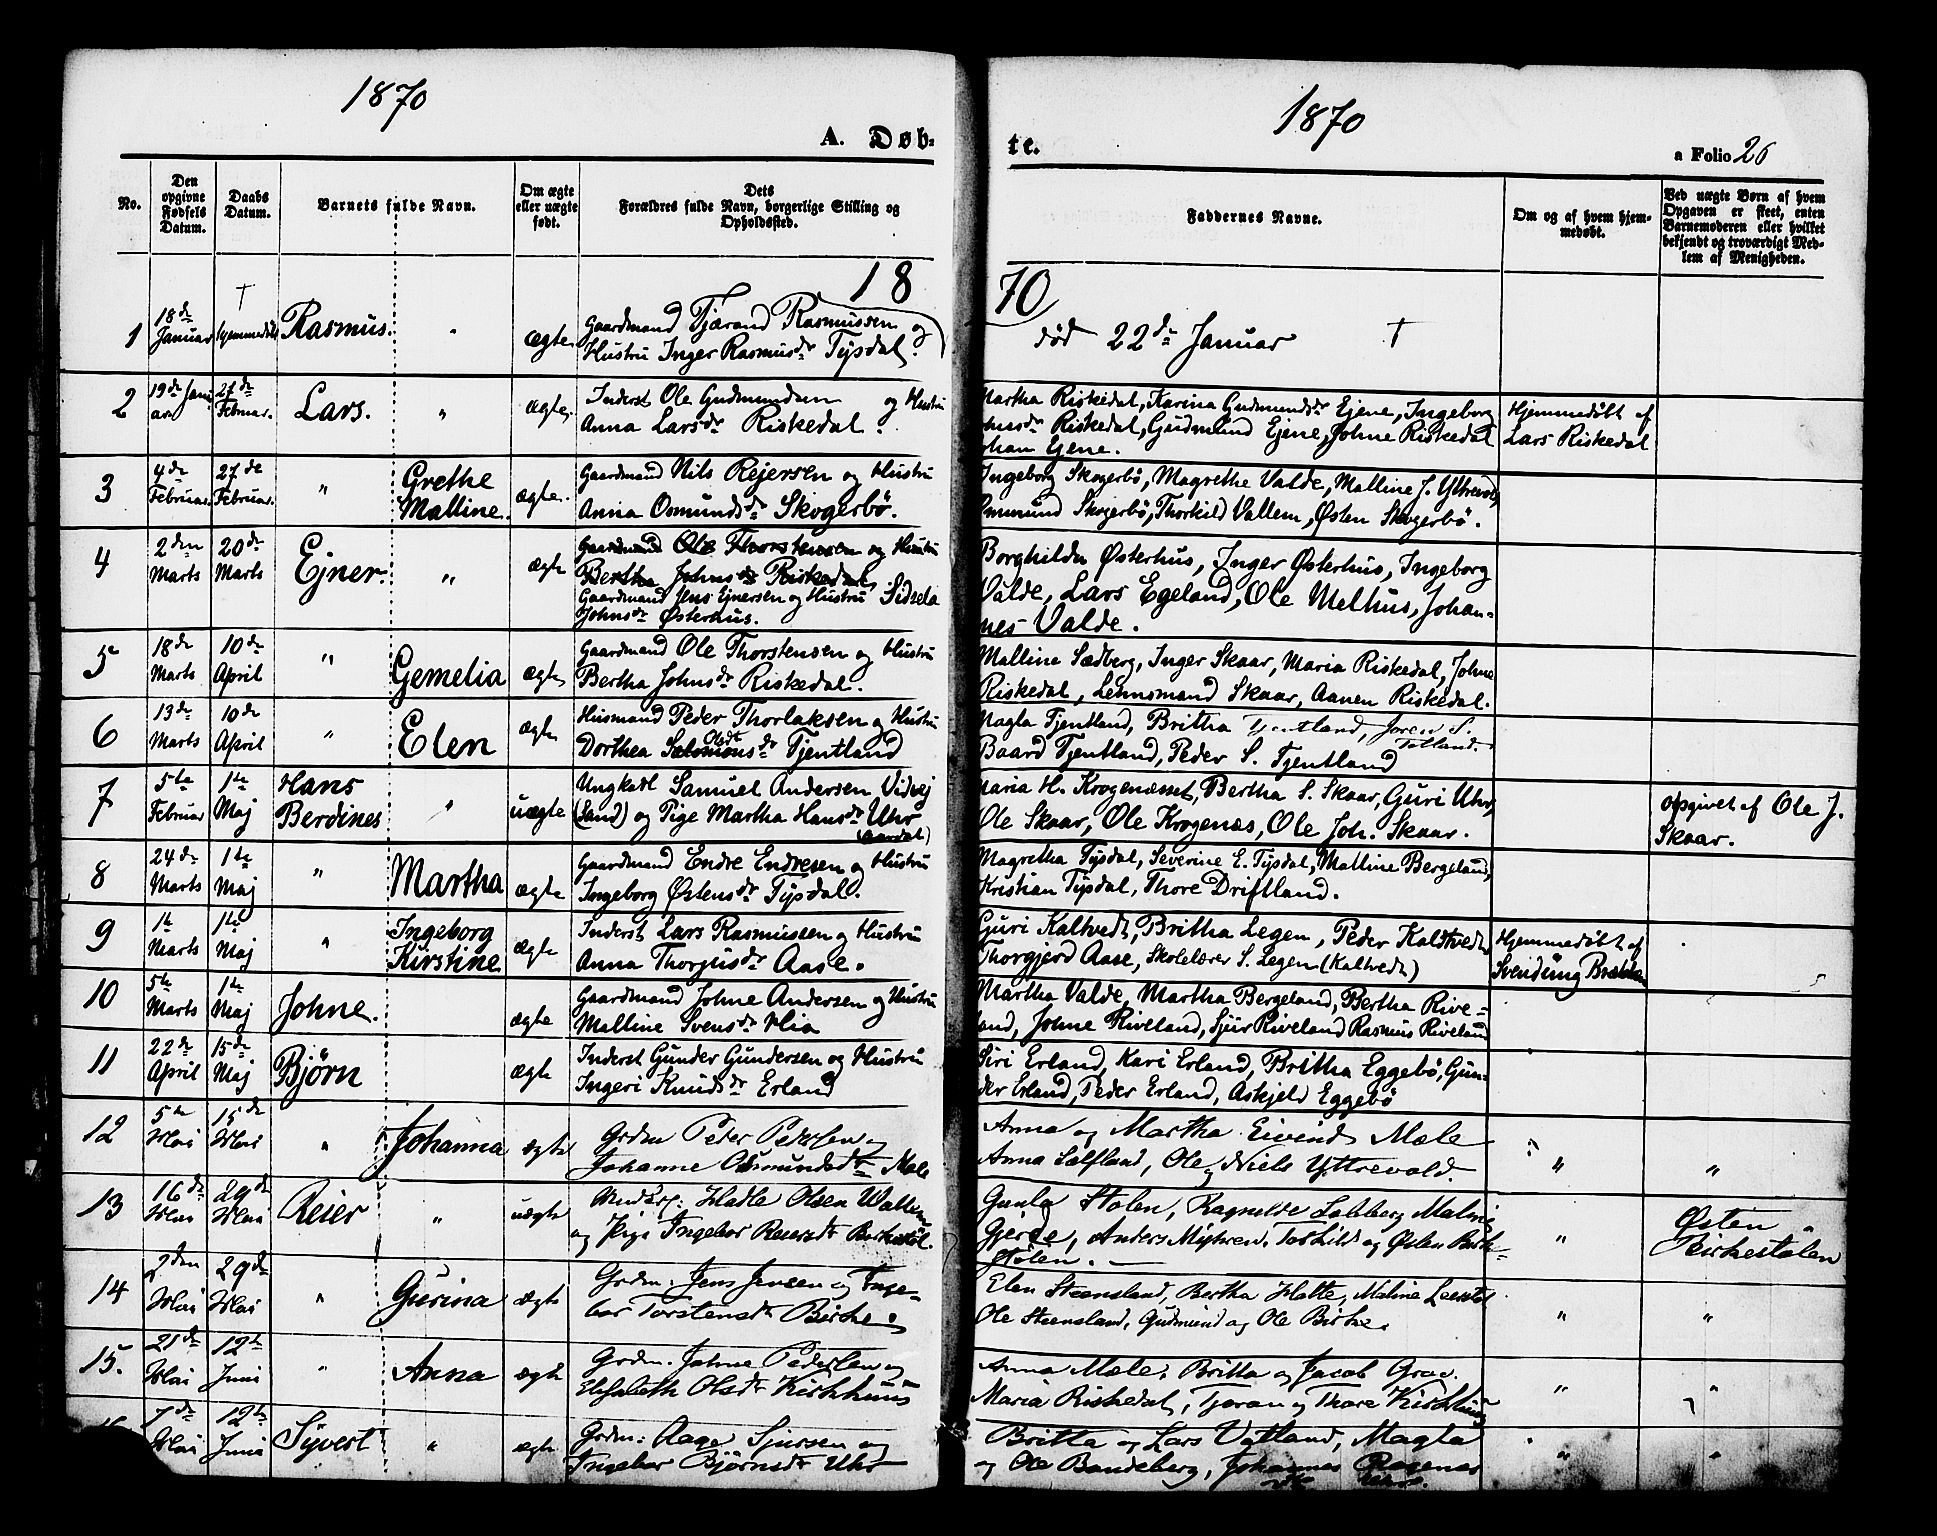 1870
1870
A. Døb-
te.
a Folio 26
No.
Den opgivne Fødsels Datum.
Daabs Datum.
Barnets fulde Navn.
Om ægte eller uægte født.
Dets Forældres fulde Navn, borgerlige Stilling og Opholdssted.
Faddernes Navne.
Om og af hvem hjem-
medøbt.
Ved uægte Børn af hvem
Opgaven er skeet, enten
Barnemoderen eller hvilket
bekjendt og troværdigt Med-
lem af Menigheden.
18
70
1 18de Januar † hjemmedøbt Rasmus. " ægte
Gaardmand Tjærand Rasmussen og
Hustru Inger Rasmusdr Tysdal.
død 22de Januar †
2 19de Janu
ar 27de Februar. Lars. " ægte
Inderst Ole Gudmundsen og Hustru
Anna Larsdr Riskedal.
Martha Riskedal, Karina Gudmundsdr Ejene, Ingeborg
Johnsdr Riskedal, Gudmund Ejene, Johne Riskedal
Johan Ejene.
Hjemmedøbt af
Lars Riskedal
3 4de Februar. 27de Februar. " Grethe
Malline. ægte.
Gaardmand Nils Rejersen og Hustru
Anna Osmundsdr Skogerbø.
Ingeborg Skogerbø, Magrethe Valde, Malline J.
Osmund Skogerbø, Thorkild Vallem, Østen Skogerbø.
4 2den Marts 20de Marts Ejner. " ægte
Gaardmand Ole Thorstensen og Hustru
Bertha Johnsdr Riskedal.
Gaardmand Jens Ejnersen og Hustru Sidsela
Johnsdr Østerhus.
Borghilda Østerhus, Inger Østerhus, Ingeborg
Valde, Lars Egeland, Ole Melhus, Johan-
nes Valde.
5 18de Marts 10de April " Gemelia ægte
Gaardmand Ole Thorstensen og Hustru
Bertha Johnsdr Riskedal.
Malline Sædberg, Inger Skaar, Maria Riskedal, Johne
Riskedal, Lehnsmand Skaar, Aanen Riskedal.
6 13de Marts 10de April " Elen ægte
Husmand Peder Thorlaksen og Hustru
Olsdr
Dorthea Salomonsdr Tjentland
Magla Tjentland, Britha Tjentland, Joren S.
Totland.
Baard Tjentland, Peder S. Tjentland
7 5te Februar 1te Maj Hans
Berdines " uægte
Ungkarl Samuel Andersen Vidvej
(Sand) og Pige Martha Hansdr Uhr
(Aardal)
Maria H. Krogenæsset, Bertha S. Skaar, Guri Uhr,
Ole Skaar, Ole Krogenæs, Ole Joh. Skaar.
opgivet af Ole J.
Skaar.
8 24de Marts 1te Maj " Martha ægte
Gaardmand Endre Endresen og Hustru
Ingeborg Østensdr Tysdal.
Magretha Tysdal, Severine E. Tysdal, Malline Bergeland,
Kristian Tysdal, Thore Driftland.
9 1te Marts 1te Maj " Ingeborg
Kirstine ægte
Inderst Lars Rasmussen og Hustru
Anna Thorgilsdr Aase.
Guri Kaltvedt, Britha Legen, Peder Kaldtvedt
Thorgjerd Aase, Skolelærer S. Legen (Kaltvedt)
Hjemmedøbt af
10 5te Marts 1te Maj Johne. ægte
Gaardmand Johne Andersen og Hustru
Malline Svensdr Hia
Martha Valde, Martha Bergeland, Bertha Rive-
land, Johne Riveland, Sjur Riveland Rasmus Riveland
11 22de April 15de Maj Bjørn ægte
Inderst Gunder Gundersen og Hustru
Ingeri Knudsdr Erland
Siri Erland, Kari Erland, Britha Eggebø, Gun-
der Erland, Peder Erland, Askjeld Eggebø
12 5te Mai 15de Mai " Johanna ægte
Grdm Peter Pedersen og
Johanne Osmundsdr Mæle
Anna og Martha Eivind Mæle
Anna, Ole og Niels Yttrevold.
" "
13 16de Mai 29de Mai Reier " uægte
Hadle Olsen
og Pige Ingebor Reiersdr
Gunla Stølen, Ragnelle Malene
Gjerde, Anders Myhren. Torkild og Østen Birk-
stølen.
"
Østen
Birkestølen
14 2den Mai 29de Mai " Gurina ægte
Grdm. Jens Jensen og Inge-
bor Torstensdr Birke.
Elen Steensland, Bertha Hatte, Maline
Ole Steensland, Gudmund og Ole Birke.
" "
15. 21de Mai 12te Juni " Anna ægte
Grdm. Johne Pedersen og
Elisabeth Olsdr Kirkhuus
Anna Mæle, Britta og Jacob
Maria Riskedal, Tjøran og Thore Kirkhuus
" "
7de Mai 12te Juni Syvert " ægte
Grdm: Aage Sjursen og
Ingebor Bjørnsdr Uhr
Britta og Lars Vatland, Magla
og Ole Bandeberg, Johannes
" "